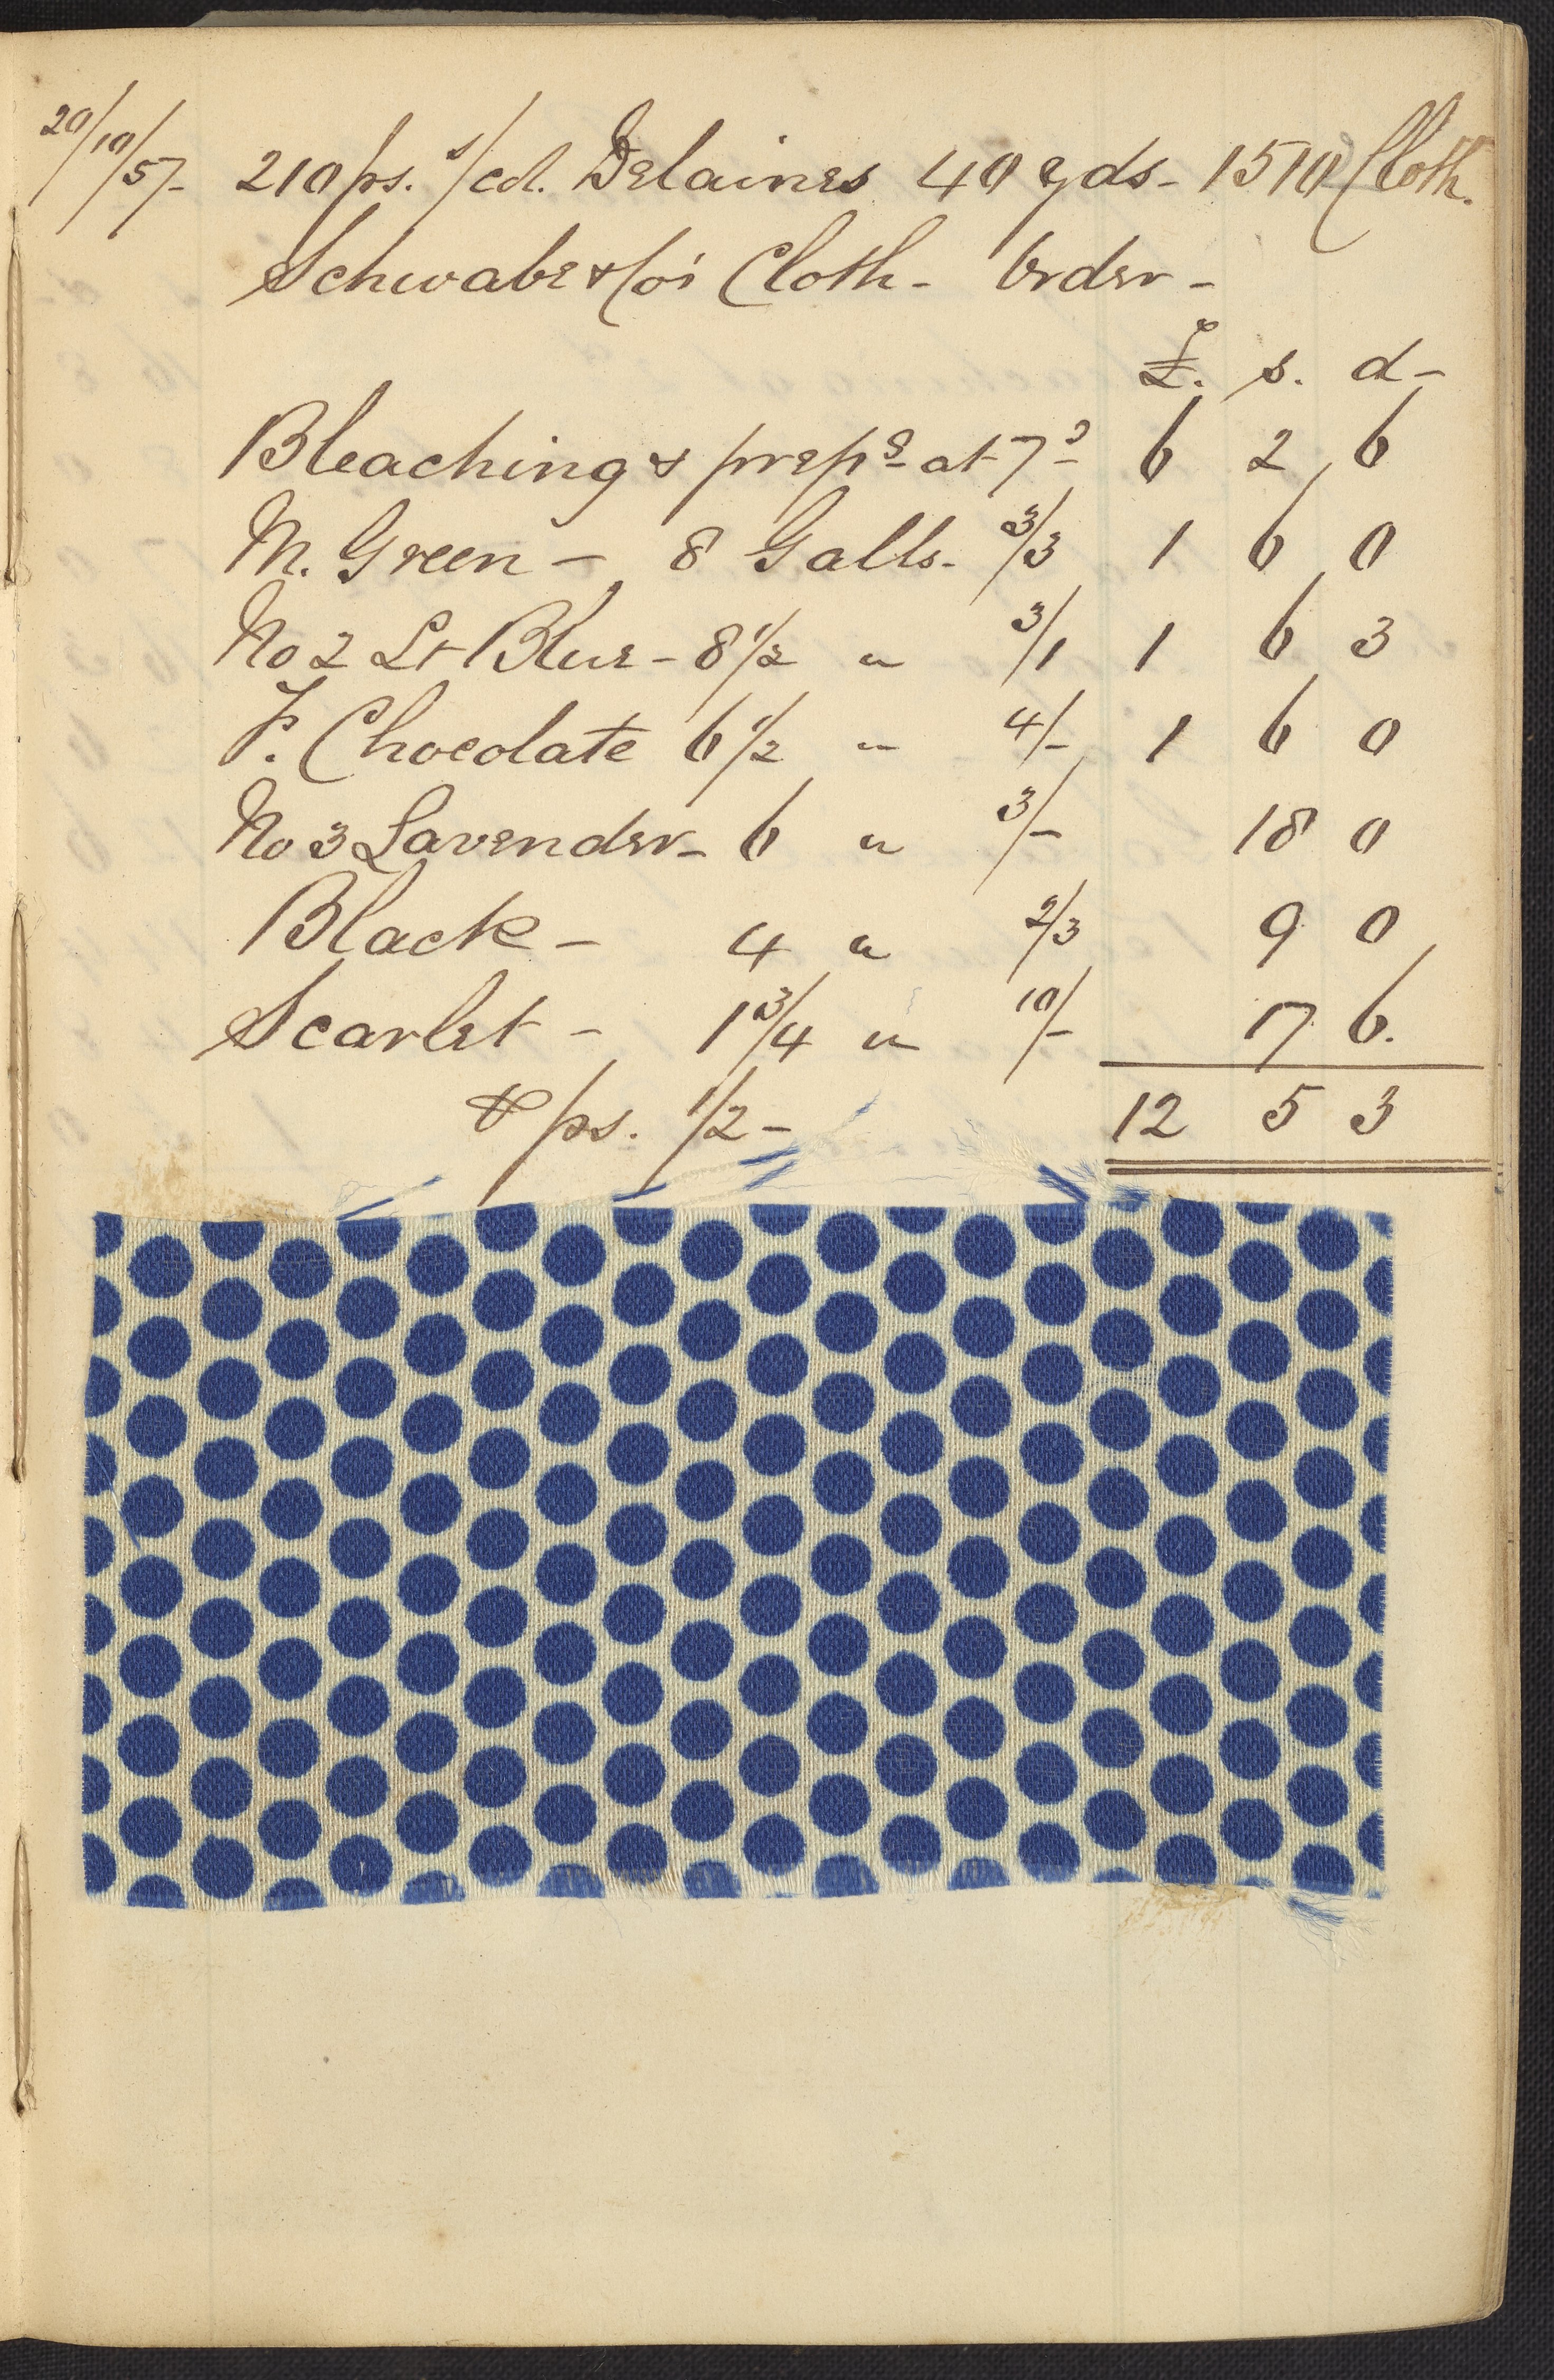 20/10/57- 210 ps. s/cd. Delaines 40 yds- 1510 Cloth.
Schwabe & Co's Cloth- Order-
£. s. d-
Bleaching & prepg at 7d 6 2 6
M. Green - 8 Galls. 3/3 1 6 0
No 2 Lt Blue - 8 1/2 " 3/1 1 6 3
F. Chocolate 6 1/2 " 4/- 1 6 0
No 3 Lavender- 6 " 3/- 18 0
Black - 4 " 2/3 9 0
Scarlet - 1 3/4 " 10/- 17 6.
ps. 1/2- 12 5 3